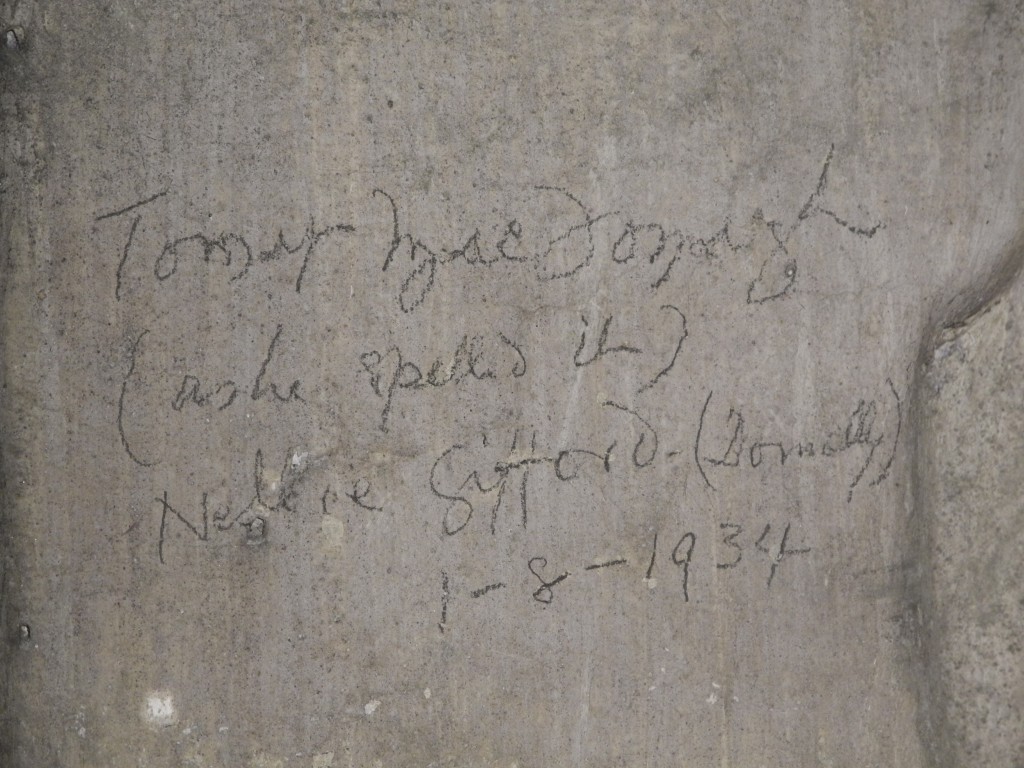 Tomas MacDonagh
(as he spelled it)
Nellie Gifford. (Donnelly)
1-8-1934